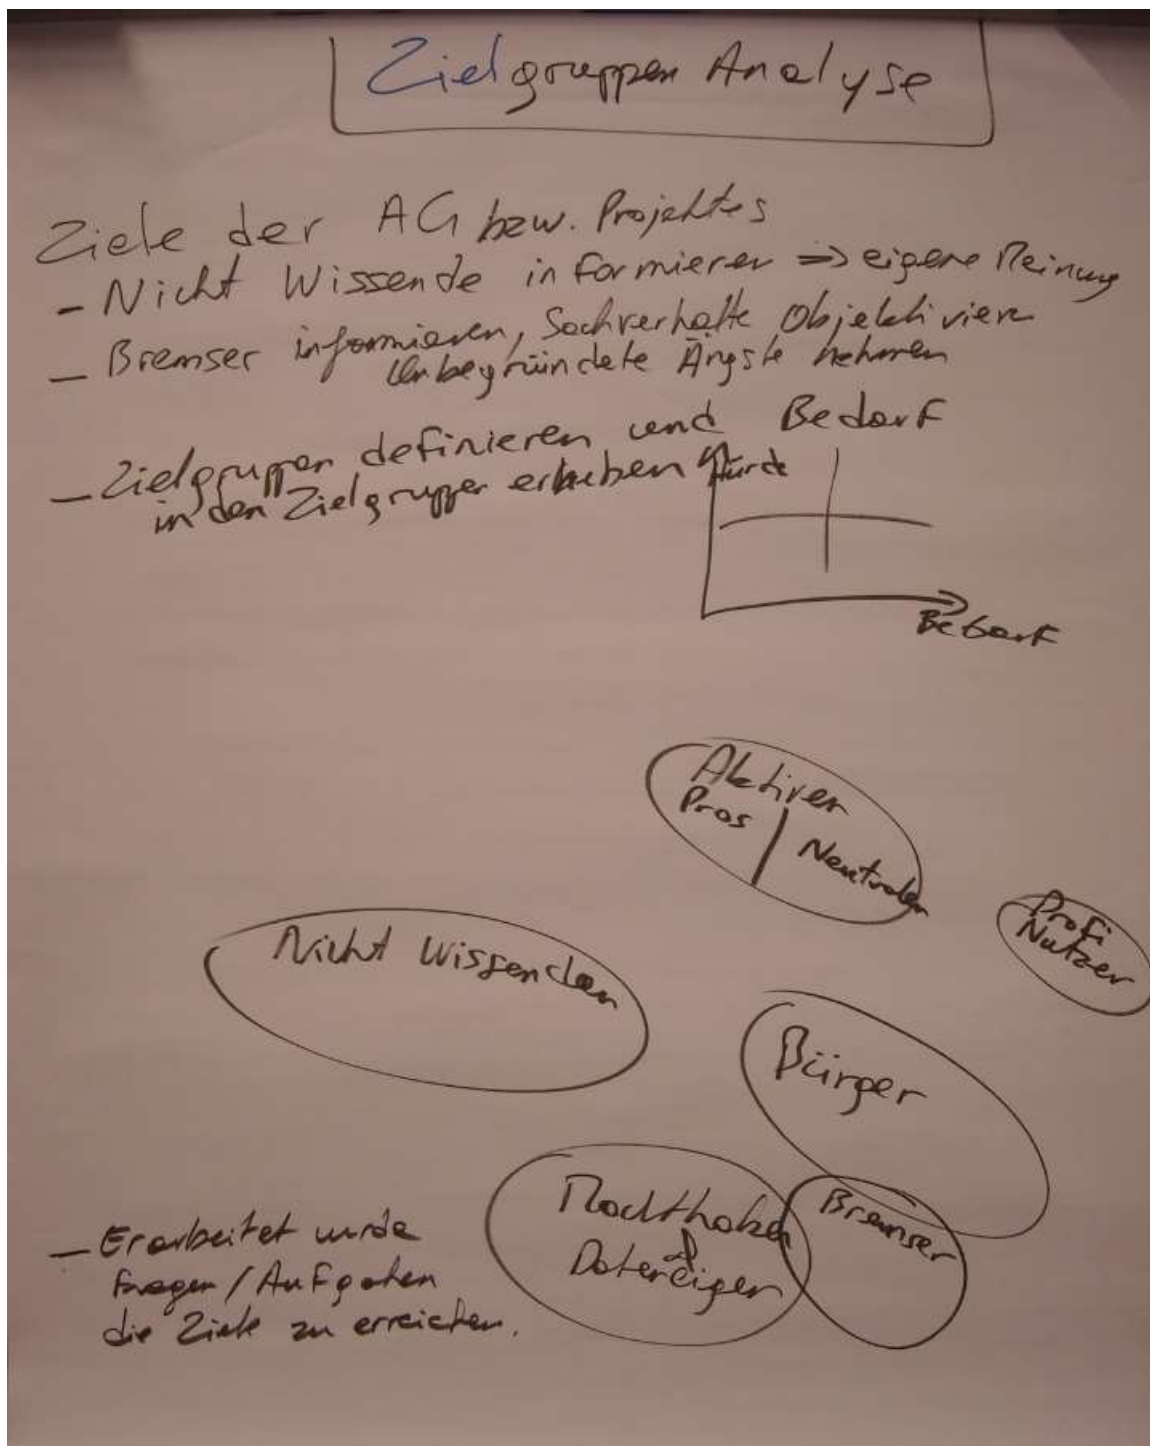 Zielgruppen Analyse
Ziele der AG bzw. Projektes
- Nicht Wissende informieren => eigene Meinung
- Bremser informieren, Sachverhalte Objektivieren
Unbegründete Ängste nehmen
- Zielgruppen definieren und Bedarf
in den Zielgruppen erheben
Hürde
Bedarf
Aktiven
Pros | Neutralen
Profi
Nutzer
Nicht Wissenden
Bürger
Machthaber
Dateneigner
Bremser
- Erarbeitet wurde
Fragen / Aufgaben
die Ziele zu erreichen.